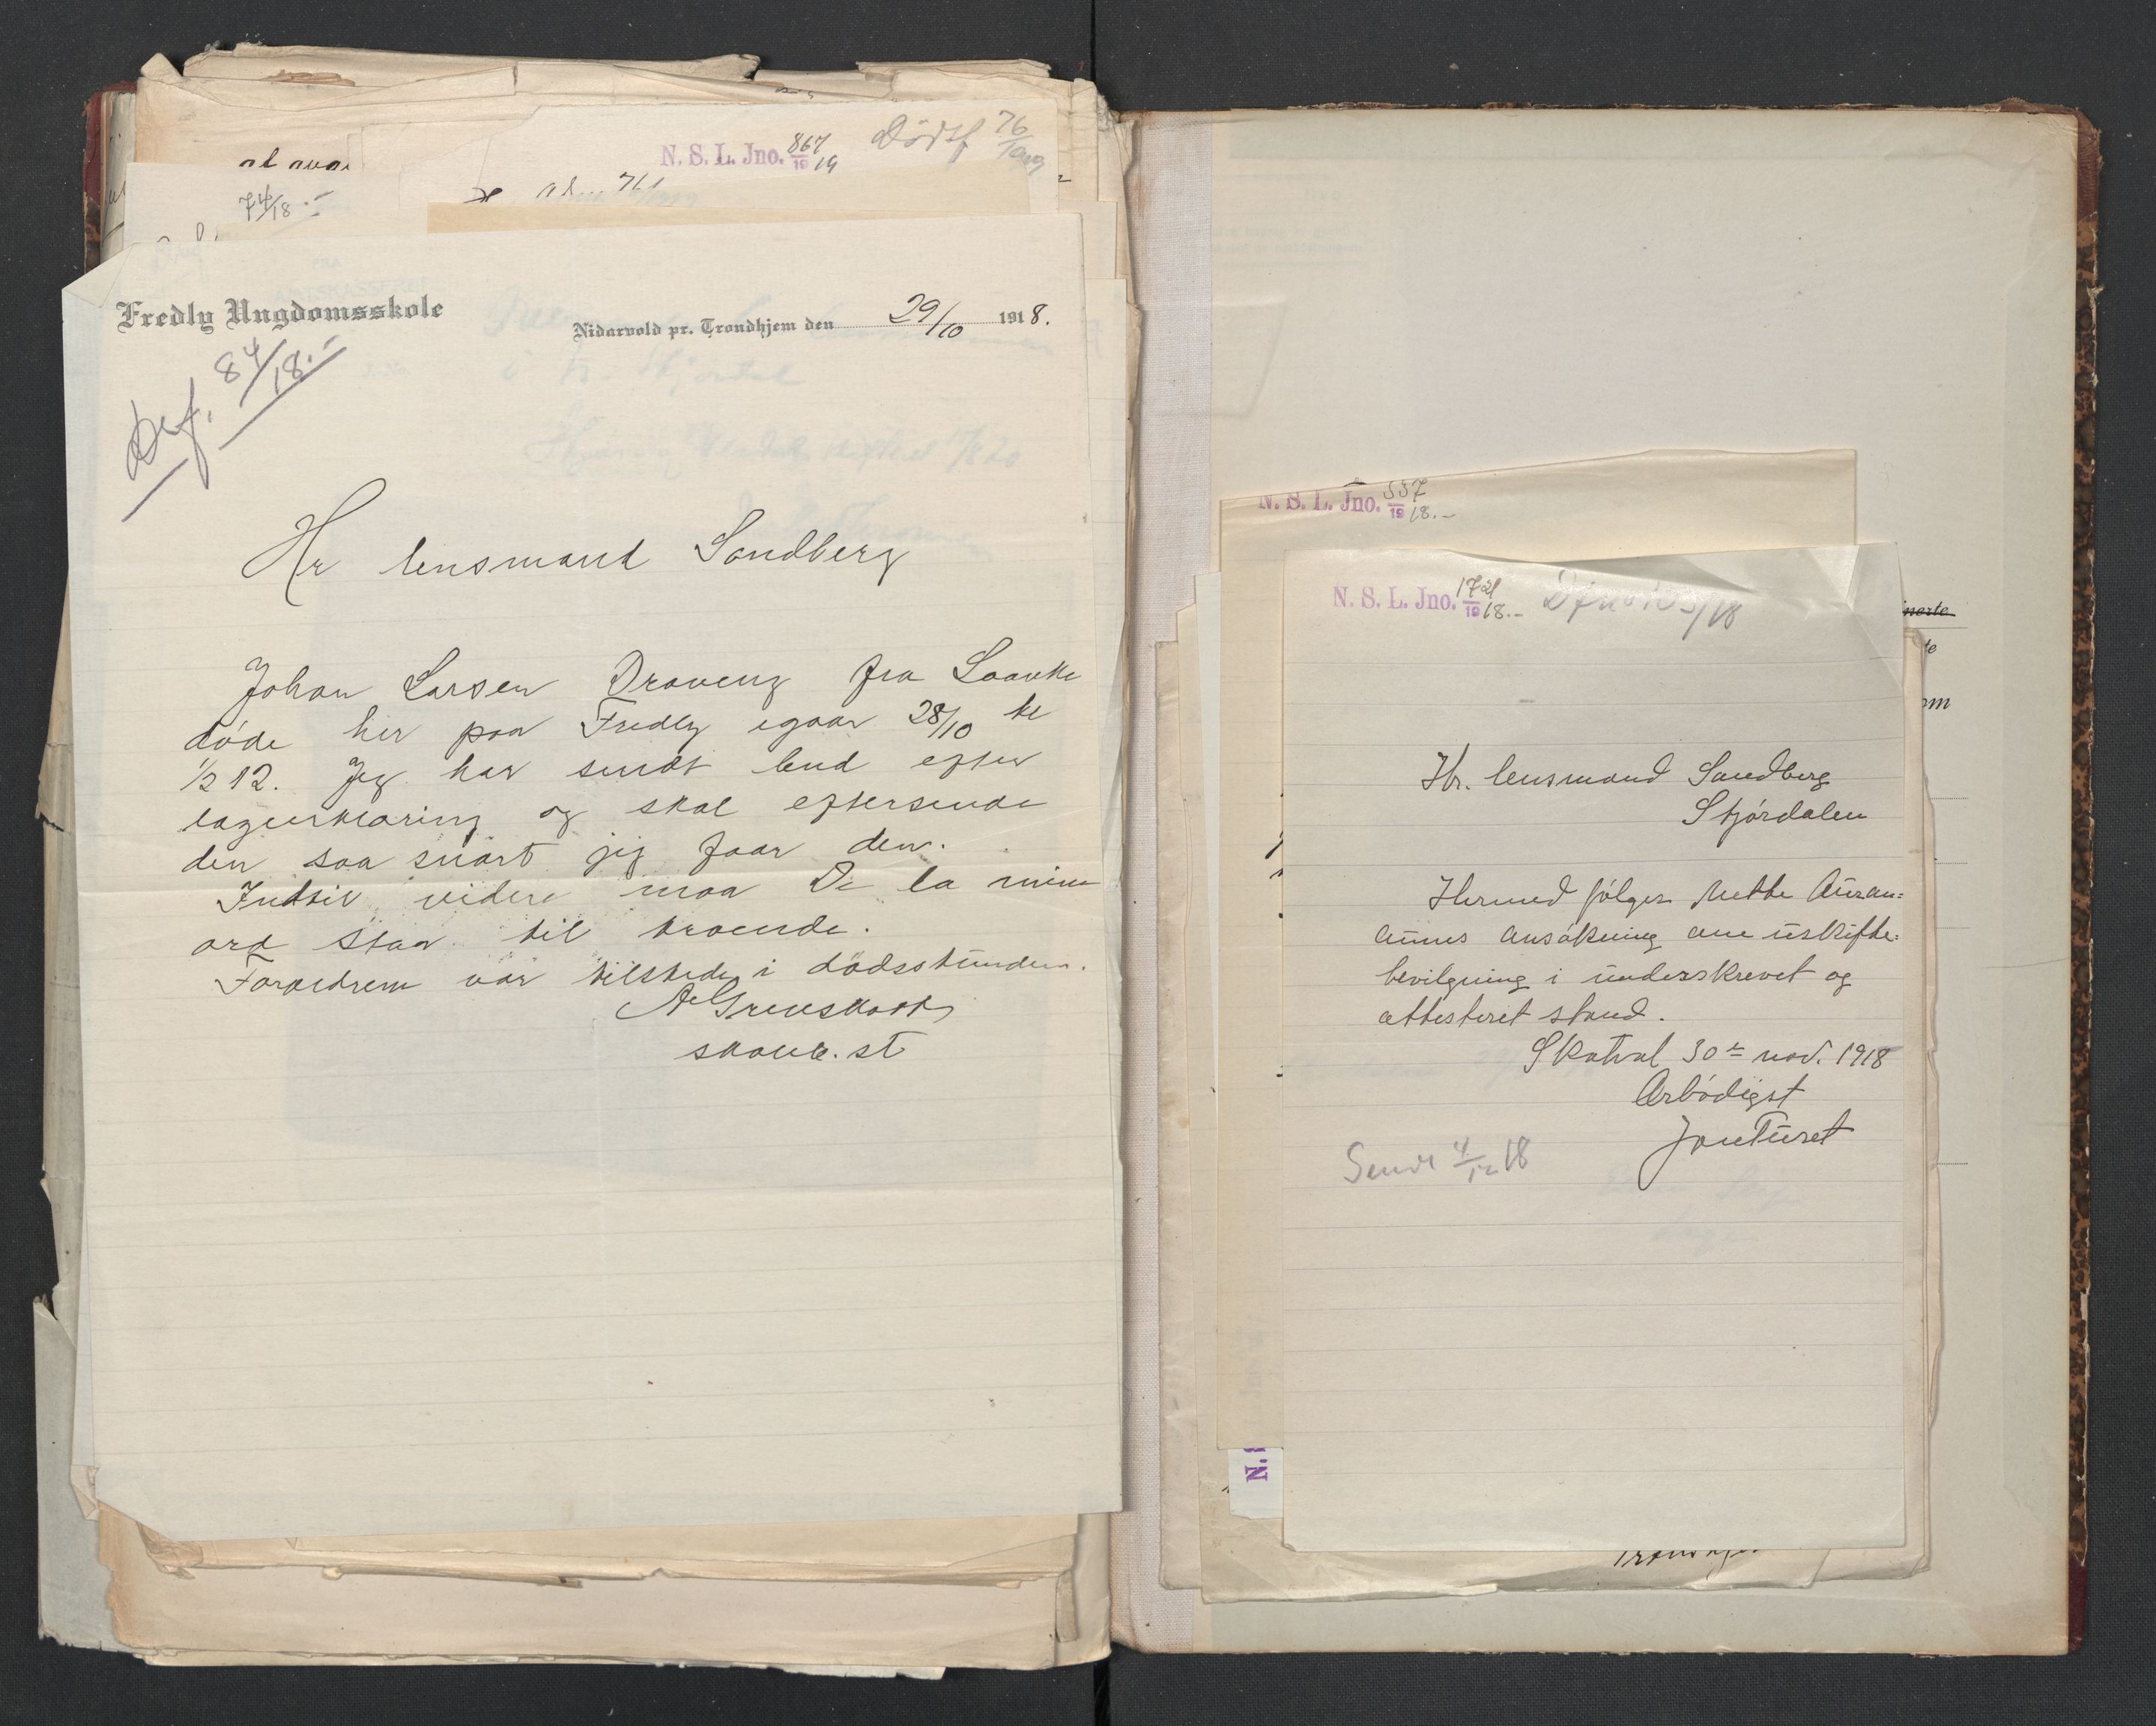 N. S. L. Jno. 867/19 19 Dødsf 76/1919
74/18.-
Fredly Ungdomsskole
Nidarvold pr. Trondhjem den 29/10 1918.
84/18.-
Hr lensmand Sandberg
Johan Larsen Draveng fra Laanke
døde her paa Fredly igaar 28/10 kl
1/2 12. Jeg har sendt bud efter
lægeerklæring og skal eftersende
den saa snart jeg faar den.
Indtil videre maa De la mine
ord staa til troende.
Forældrene var tilstede i dødsstunden.
skoleb. st
N. S. L. Jno. 557/19 18.-
N. S. L. Jno. 1721/19 18.-
Hr. lensmand Sandberg
Stjørdalen
Hermed følger Mette Auran=
aunes ansøkning om uskifte=
bevilgning i underskrevet og
attesteret stand.
Skatval 30te nov. 1918
Ærbødigst
Jon Turet
Sendt 4/12 18
N.